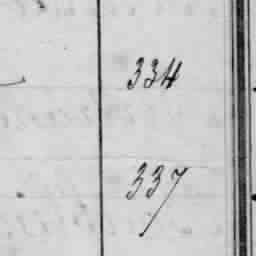 334
337